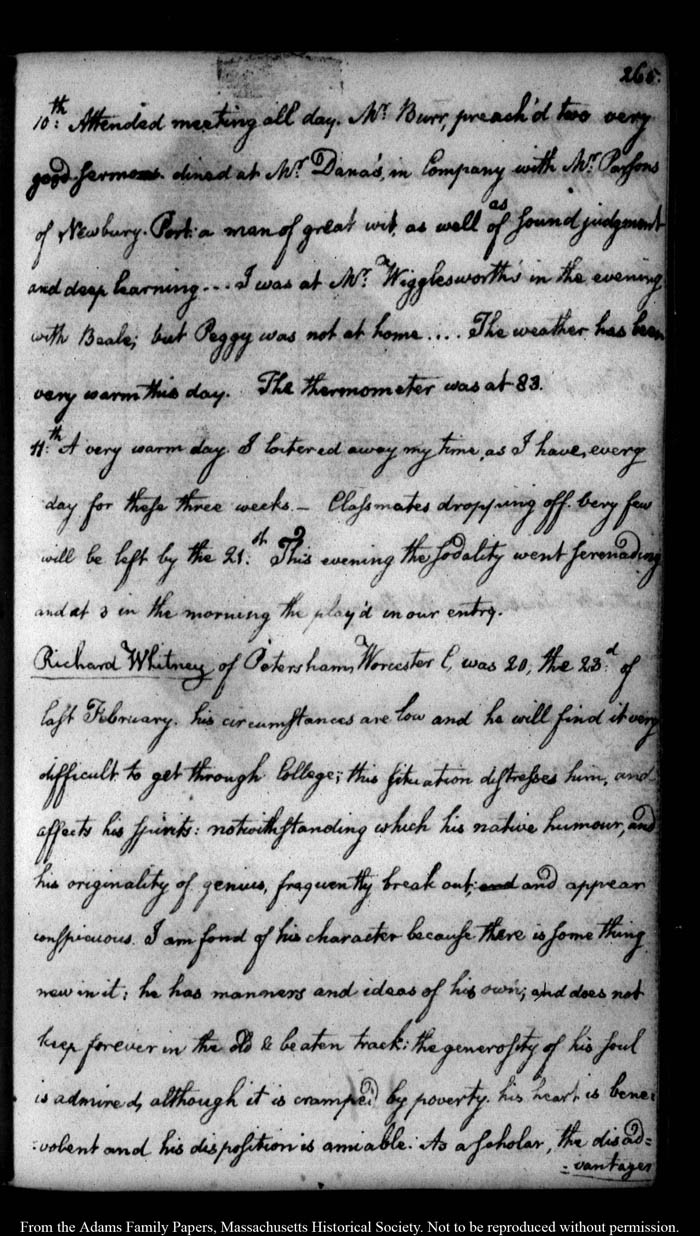 265.
10th: Attended meeting all day. Mr. Burr, preach'd two very
good sermons. dined at Mr. Dana's, in Company with Mr. Parsons
of Newbury-Port: a man of great wit, as well as of sound judgment
and deep learning... I was at Mr. Wigglesworth's in the evening
with Beale; but Peggy was not at home.... The weather has been
very warm this day. The thermometer was at 83.
11:th A very warm day. I loitered away my time, as I have, every
day for these three weeks.— Classmates dropping off. Very few
will be left by the 21:st This evening the sodality went serenading
and at 3 in the morning the play'd in our entry.
Richard Whitney of Petersham, Worcester C, was 20, the 23:d of
last February. his circumstances are low and he will find it very
difficult to get through College; this situation distresses him, and
affects his spirits: notwithstanding which his native humour, and
his originality of genius, frequently break out; and and appear
conspicuous. I am fond of his character because there is something
new in it: he has manners and ideas of his own; and does not
keep forever in the old & beaten track: the generosity of his soul
is admired, although it is cramped by poverty. his heart is bene:
:volent and his disposition is amiable. As a scholar, the disad=
=vantages
From the Adams Family Papers, Massachusetts Historical Society. Not to be reproduced without permission.